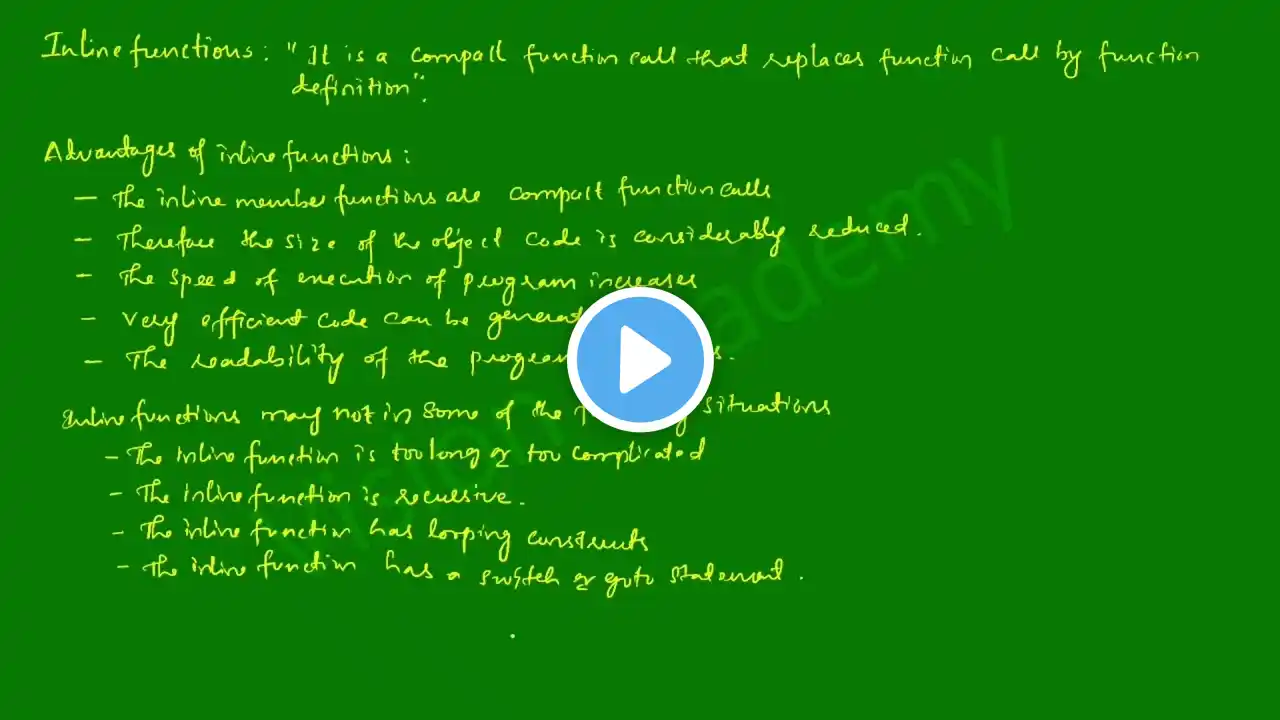 Inline functions: "It is a compact function call that replaces function call by function
definition".
Advantages of inline functions:
– The inline member functions are compact function calls
– Therefore the size of the object code is considerably reduced.
– The speed of execution of program increases
– Very efficient code can be
– The readability of the
Inline functions may not in some of the situations
– The inline function is too long or too complicated
– The inline function is recursive.
– The inline function has looping constructs
– The inline function has a switch or goto statement.